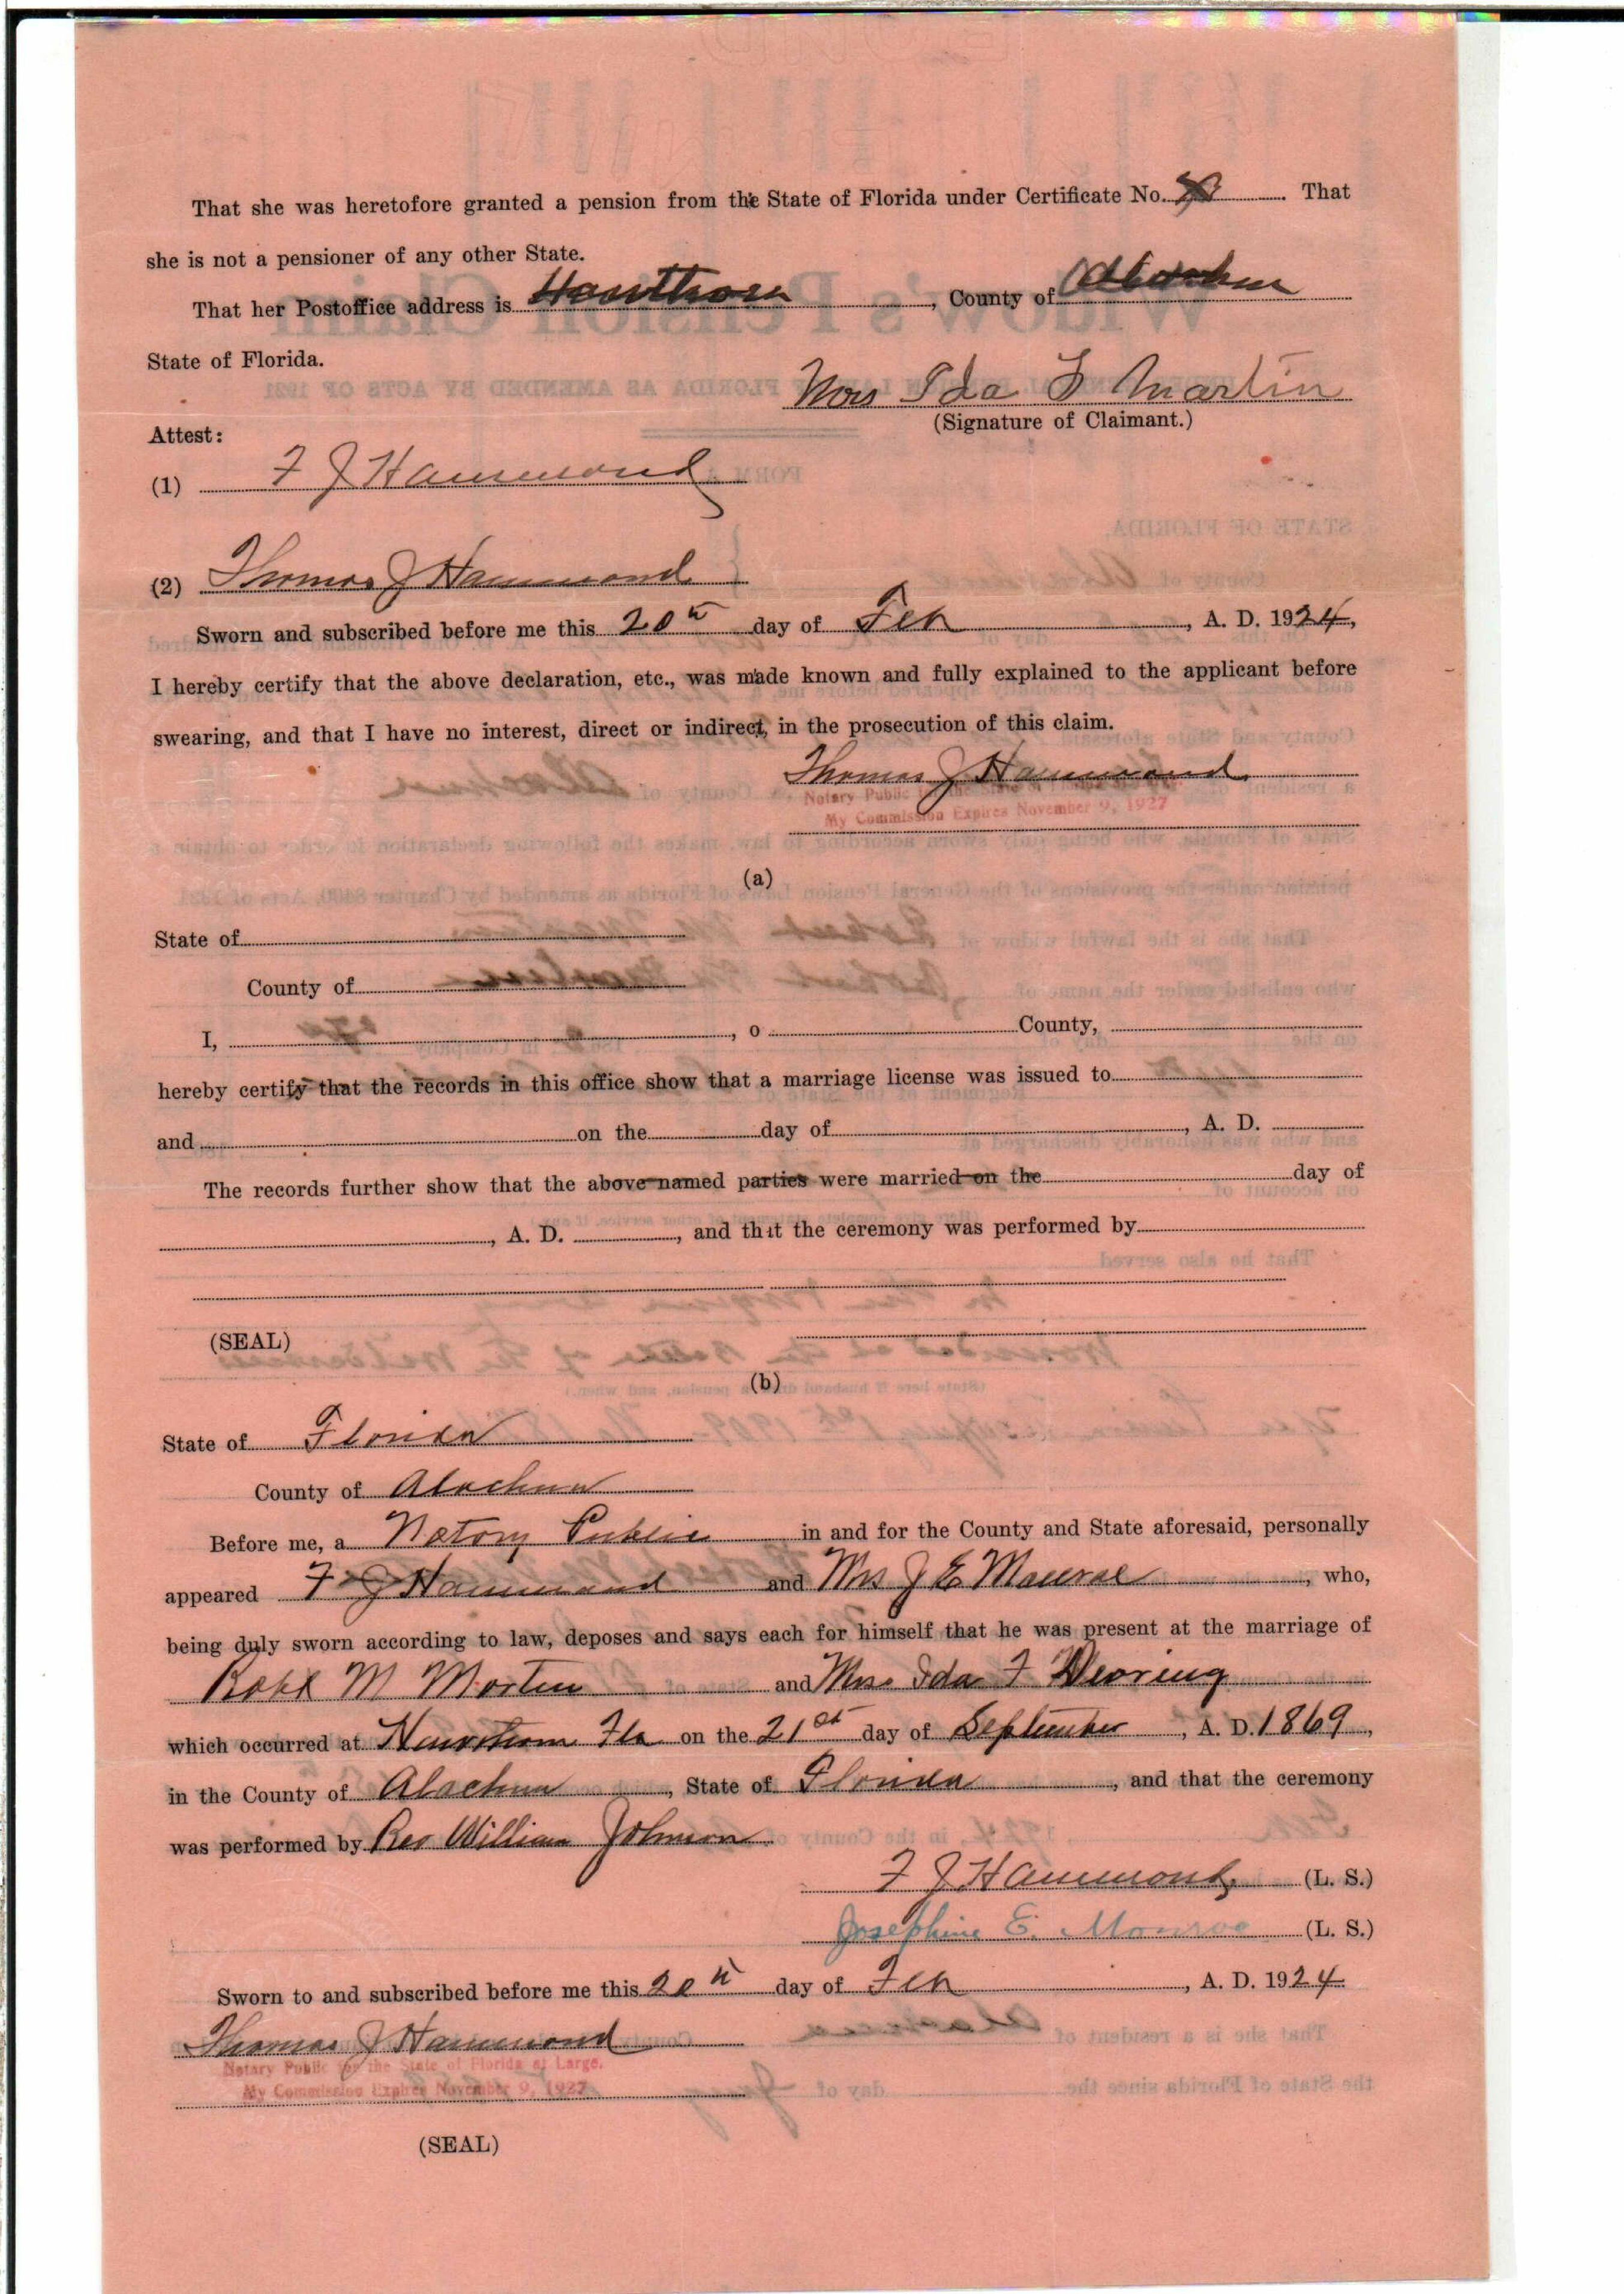 That she was heretofore granted a pension from the State of Florida under Certificate No. That
she is not a pensioner of any other State.
That her Postoffice address is Hawthorn, County of Alachua
State of Florida.
Mrs Ida F Martin
(Signature of Claimant.)
Attest:
(1) F J Hammond
(2) Thomas J Hammond
Sworn and subscribed before me this 20th day of Feb, A. D. 1924,
I hereby certify that the above declaration, etc., was made known and fully explained to the applicant before
swearing, and that I have no interest, direct or indirect, in the prosecution of this claim.
Thomas J Hammond
Notary Public for the State of Florida at Large.
My Commission Expires November 9, 1927
(a)
State of
County of
I, , o County,
hereby certify that the records in this office show that a marriage license was issued to
and on the day of , A. D.
The records further show that the above named parties were married on the day of
, A. D. , and that the ceremony was performed by
(SEAL)
(b)
State of Florida
County of Alachua
Before me, a Notory Public in and for the County and State aforesaid, personally
appeared F J Hammond and Mrs J E Monroe, who,
being duly sworn according to law, deposes and says each for himself that he was present at the marriage of
Robt M Martin and Miss Ida F Dearing
which occurred at Hawthorn Fla on the 21st day of September, A. D. 1869,
in the County of Alachua, State of Florida, and that the ceremony
was performed by Rev William Johnson
F J Hammond (L. S.)
Josephine E. Monroe (L. S.)
Sworn to and subscribed before me this 20th day of Feb, A. D. 1924
Thomas J Hammond
Notary Public for the State of Florida at Large.
My Commission Expires November 9, 1927
(SEAL)